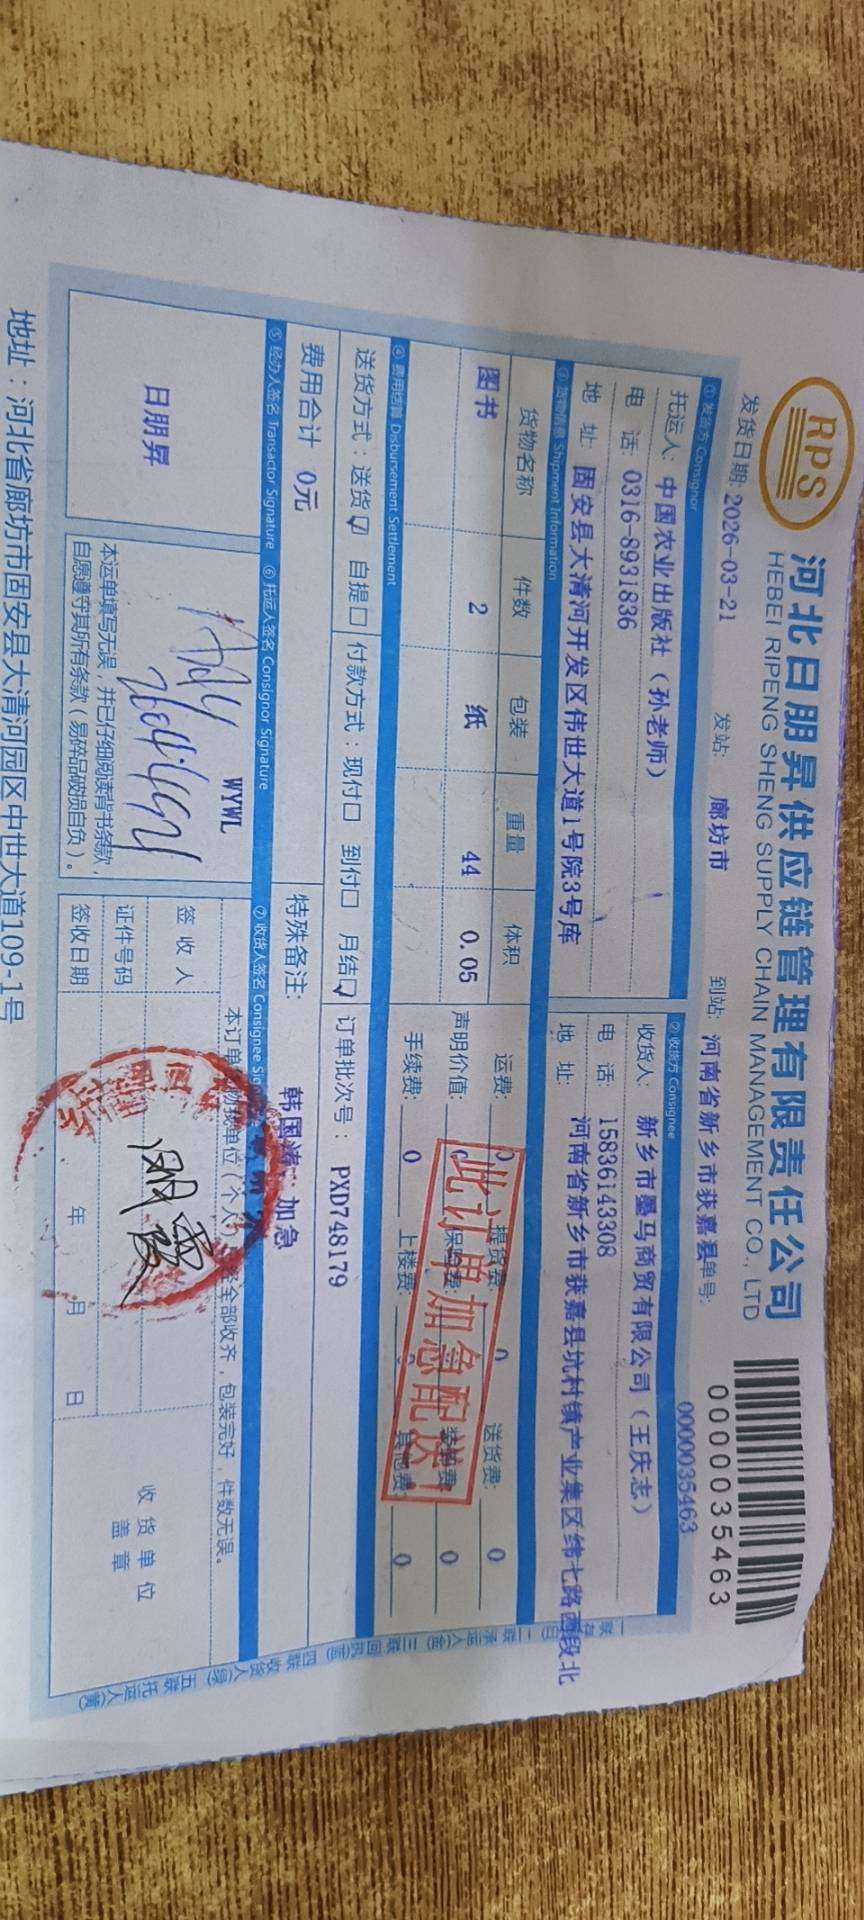 RPS
河北日朋昇供应链管理有限责任公司
HEBEI RIPENG SHENG SUPPLY CHAIN MANAGEMENT CO., LTD
0000035463
发货日期: 2026-03-21 发站: 廊坊市 到站: 河南省新乡市获嘉县 单号: 0000035463
① 发货方 Consignor ② 收货方 Consignee
托运人: 中国农业出版社（孙老师） 收货人: 新乡市墨马商贸有限公司（王庆志）
电 话: 0316-8931836 电 话: 15836143308
地 址: 固安县大清河开发区伟世大道1号院3号库 地 址: 河南省新乡市获嘉县亢村镇产业集区纬七路西段北
③ 货物信息 Shipment Information
货物名称 件数 包装 重量 体积 运费: 0 提货费: 0 送货费: 0
图书 2 纸 44 0.05 声明价值: 保险费: 装卸费: 0
手续费: 0 上楼费: 其他费: 0
此订单加急配送
④ 费用结算 Disbursement Settlement
送货方式：送货☑ 自提□ 付款方式：现付□ 到付□ 月结☑ 订单批次号： PXD748179
费用合计 0元 特殊备注: 韩国涛 加急
⑤ 经办人签名 Transactor Signature ⑥ 托运人签名 Consignor Signature ⑦ 收货人签名 Consignee
日朋昇
WYWL
本运单填写无误，并已仔细阅读背书条款，
自愿遵守其所有条款（易碎品破损自负）。
本订单 单位（个人） 全部收齐，包装完好，件数无误。
签 收 人
证件号码
签收日期 年 月 日
收 货 单 位
盖 章
二联承运人 三联回执 四联收货人 五联托运人
地址：河北省廊坊市固安县大清河园区中世大道109-1号